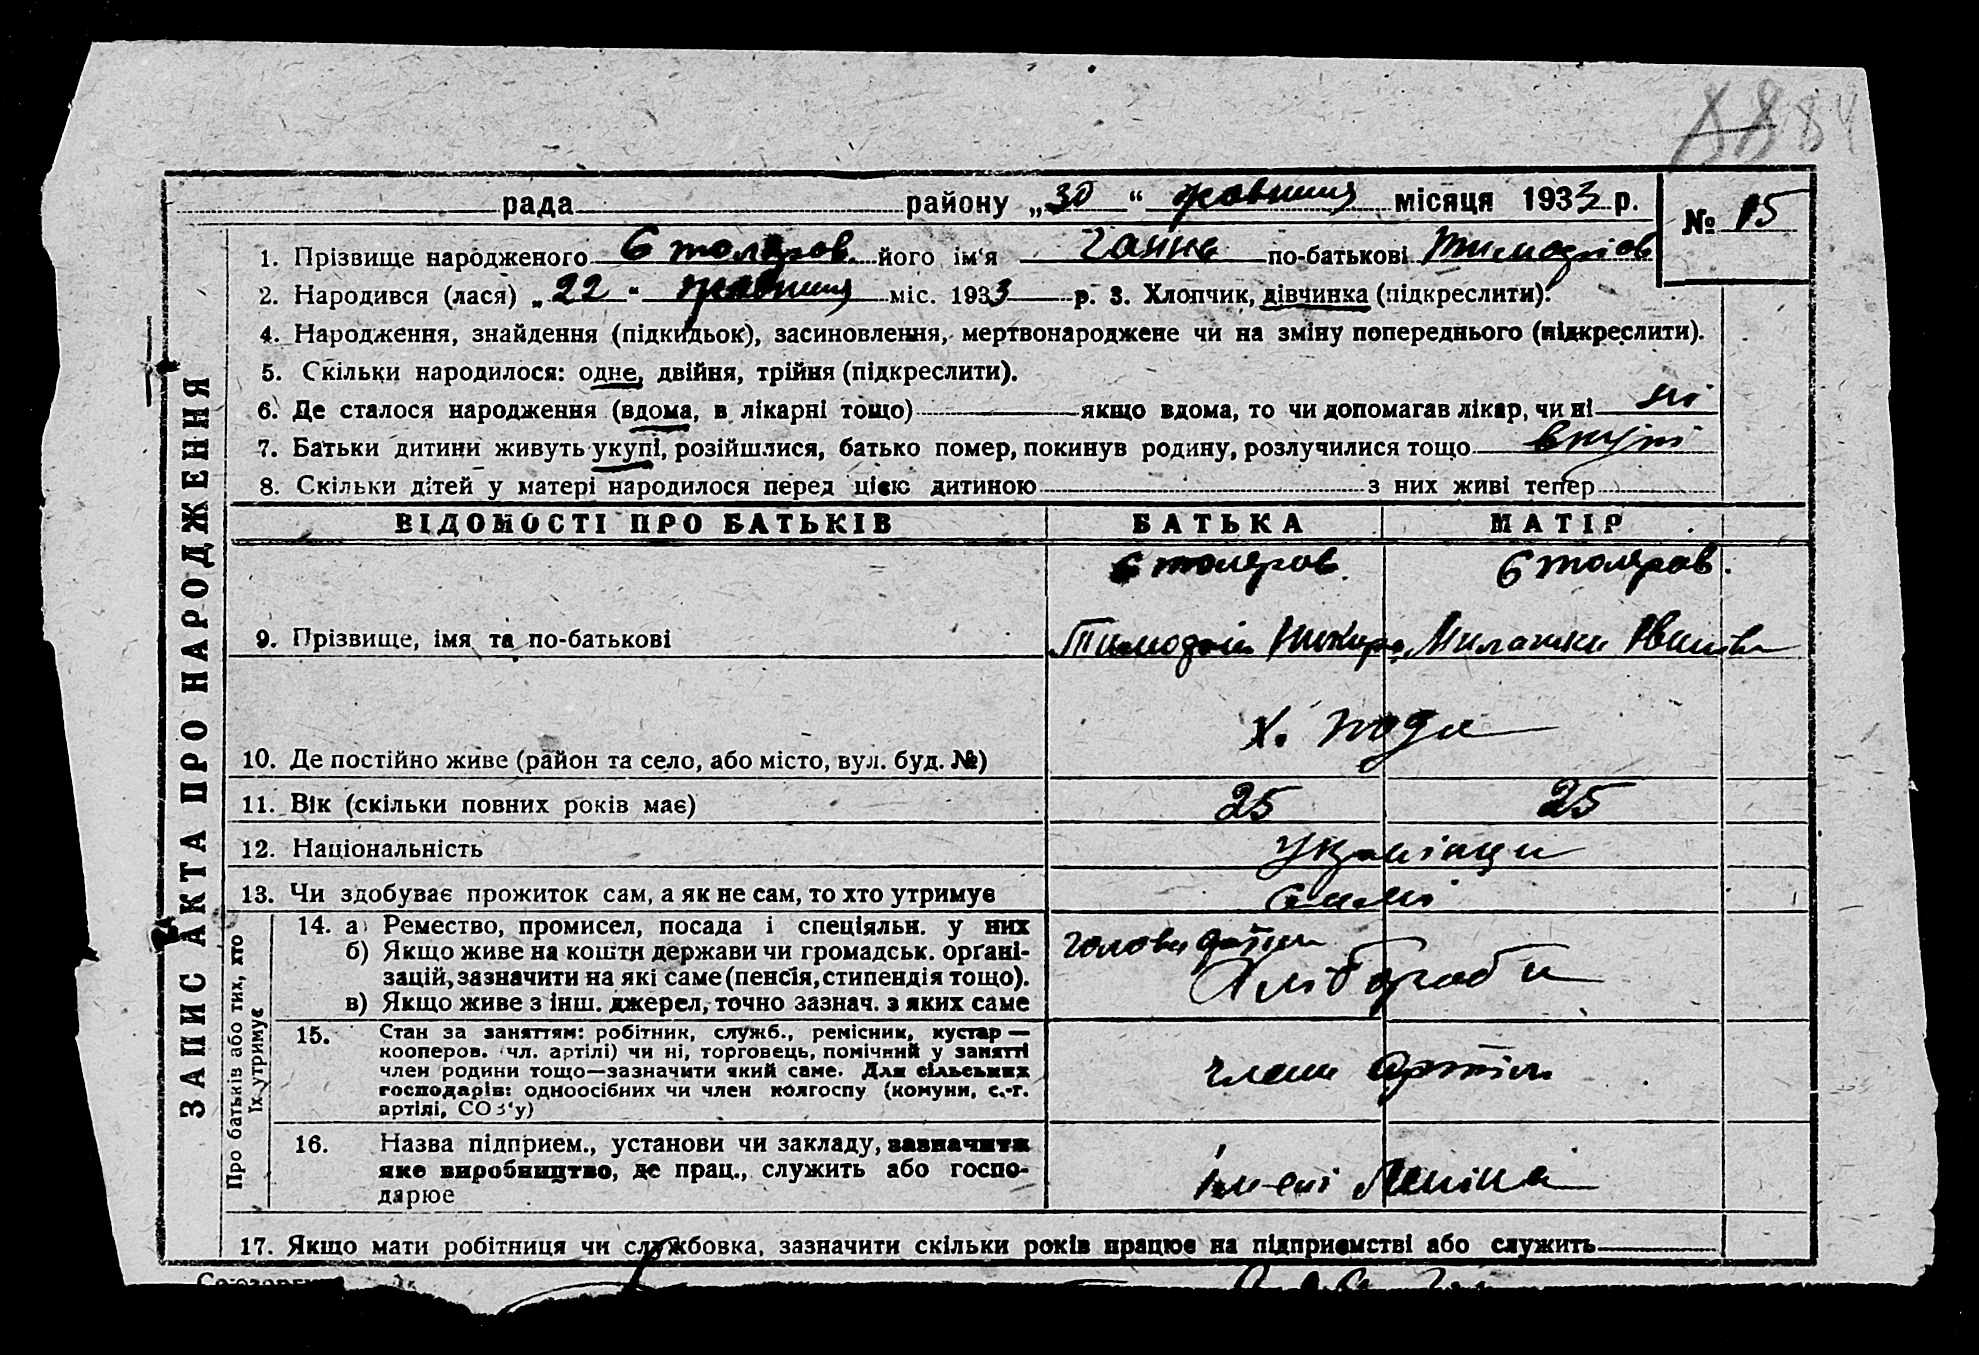 88 84
рада району „30“ жовтня місяця 1933 р. № 15
1. Прізвище народженого Столяров його ім'я Ганна по-батькові Тимофіїв
2. Народився (лася) „22“ жовтня міс. 1933 р. 3. Хлопчик, дівчинка (підкреслити).
4. Народження, знайдення (підкидьок), засиновлення, мертвонароджене чи на зміну попереднього (підкреслити).
5. Скільки народилося: одне, двійня, трійня (підкреслити).
6. Де сталося народження (вдома, в лікарні тощо) якщо вдома, то чи допомагав лікар, чи ні ні
7. Батьки дитини живуть укупі, розійшлися, батько помер, покинув родину, розлучилися тощо вкупі
8. Скільки дітей у матері народилося перед цією дитиною з них живі тепер
ЗАПИС АКТА ПРО НАРОДЖЕННЯ
ВІДОМОСТІ ПРО БАТЬКІВ БАТЬКА МАТІР
Столяров Столяров
9. Прізвище, імя та по-батькові Тимофій
10. Де постійно живе (район та село, або місто, вул. буд. №) х.
11. Вік (скільки повних років має) 25 25
12. Національність Українци
13. Чи здобуває прожиток сам, а як не сам, то хто утримує самі
Про батьків або тих, хто
їх утримує
14. а) Ремество, промисел, посада і спеціяльн. у них
б) Якщо живе на кошти держави чи громадськ. органі-
зацій, зазначити на які саме (пенсія, стипендія тощо).
в) Якщо живе з інш. джерел, точно зазнач. з яких саме
голова
Хлібороби
15. Стан за заняттям: робітник, служб., ремісник, кустар —
кооперов. (чл. артілі) чи ні, торговець, помічний у занятті
член родини тощо—зазначити який саме. Для сільських
господарів: одноосібних чи член колгоспу (комуни, с.-г.
артілі, СОЗ'у)
члени артіли
16. Назва підприєм., установи чи закладу, зазначити
яке виробництво, де прац., служить або госпо-
дарює
імені Леніна
17. Якщо мати робітниця чи службовка, зазначити скільки років працює на підприємстві або служить